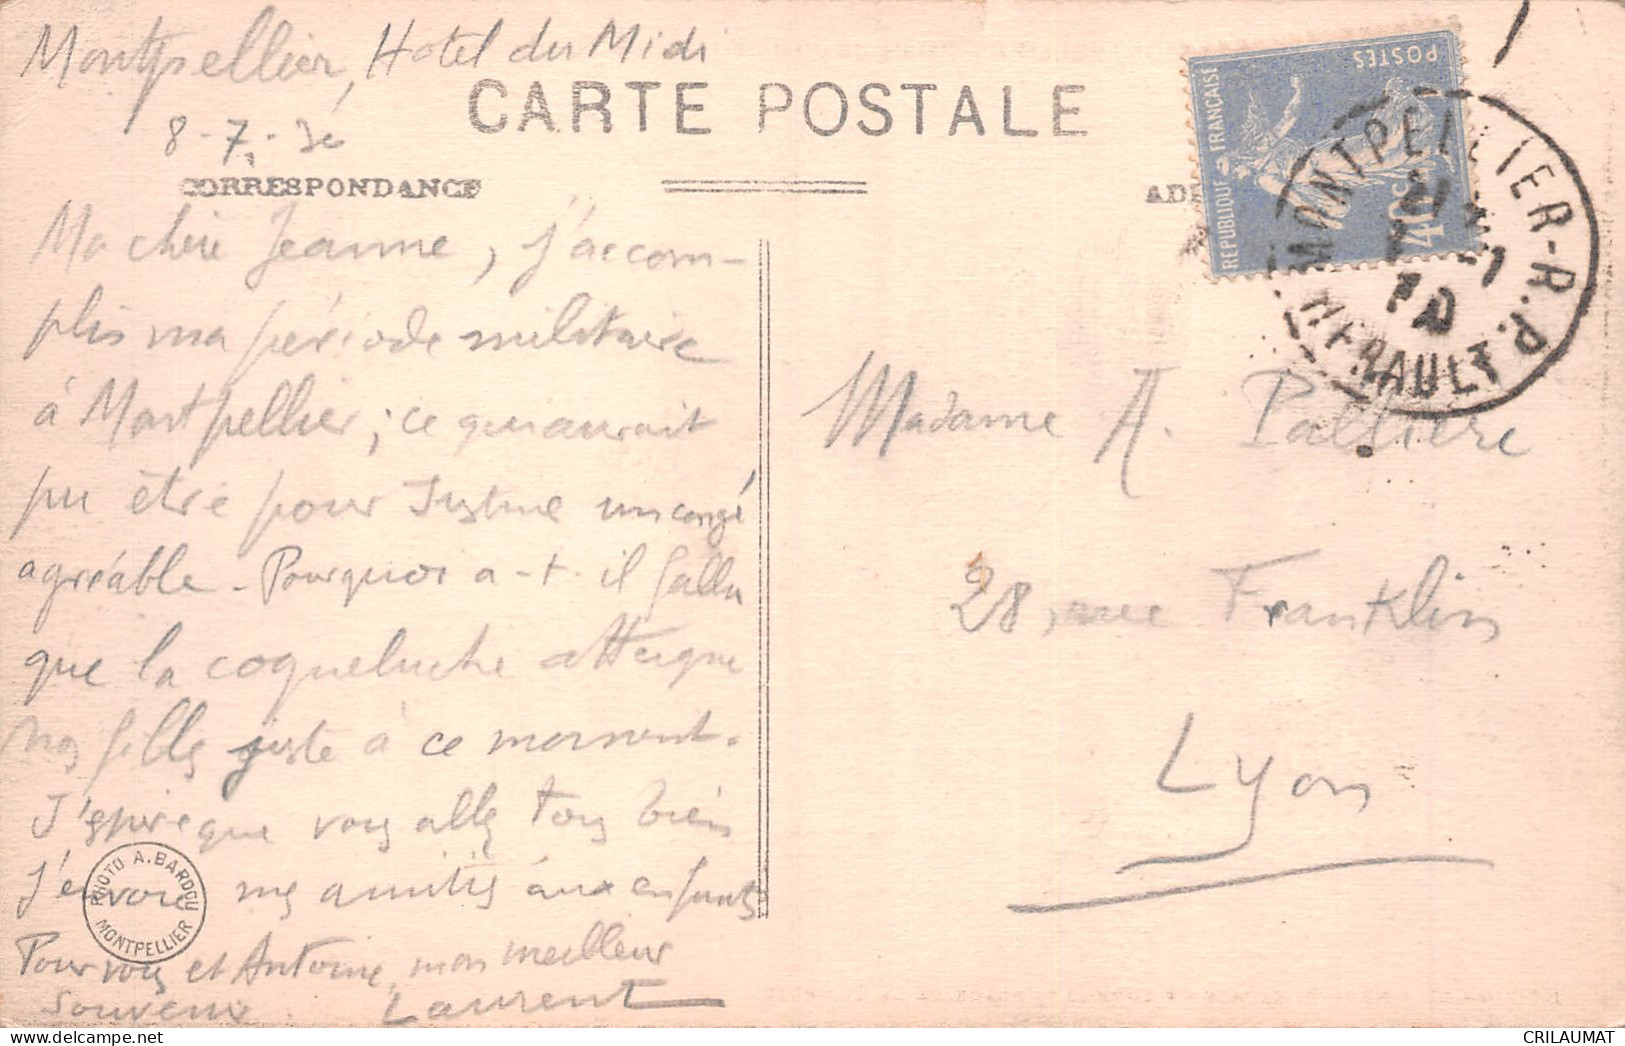 Montpellier, Hotel du Midi
8-7.-30
CARTE POSTALE
CORRESPONDANCE
Ma chère Jeanne, j'accom-
plis ma période militaire
à Montpellier; ce qui aurait
pu être pour Justine un congé
agréable - Pourquoi a-t-il fallu
que la coqueluche atteigne
nos filles juste à ce moment.
J'espère que vous allez tous bien
J'envoie mes amitiés aux enfants
Pour vous et Antoine, mon meilleur
souvenir. Laurent
PHOTO A. BARDOU
MONTPELLIER
REPUBLIQUE FRANÇAISE
POSTES
40c
MONTPELLIER-R.P.
HERAULT
Madame A. Pallière
28, rue Franklin
Lyon
CRILAUMAT